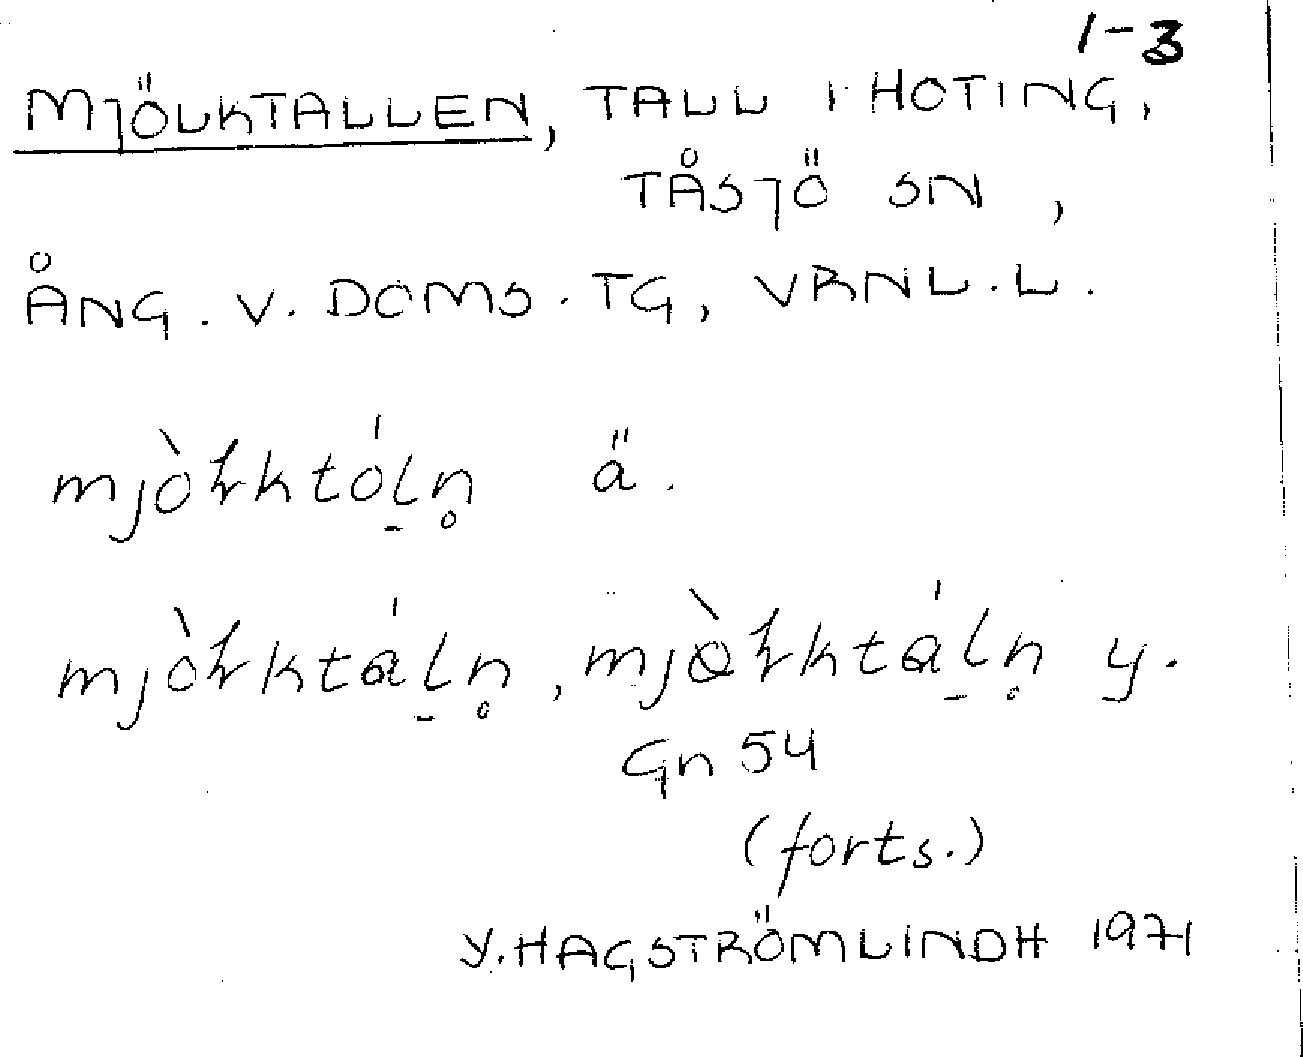 1-3
MJÖLKTALLEN, TALL I HOTING,
TÅSJÖ SN,
ÅNG. V. DOMS. TG, VRNL. L.
ä.
y.
Gn 54
(forts.)
Y. HAGSTRÖMLINDH 1971